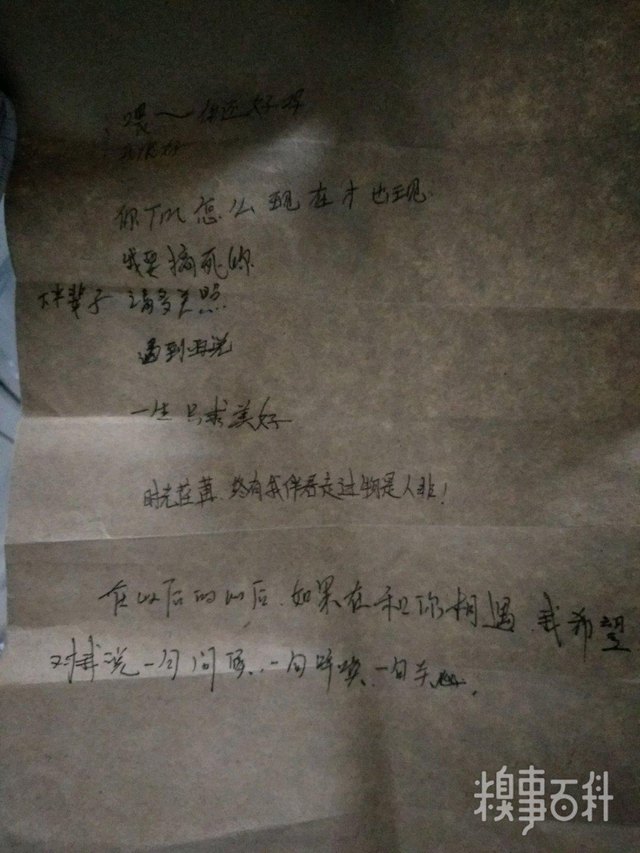 喂~你还好吗
我很好
你TM怎么现在才出现
我要搞死你
下半辈子 请多关照
遇到再说
一生只求美好
时光荏苒,终有我伴着走过物是人非!
在以后的以后,如果在和你相遇,我希望
对我说一句问候、一句呼唤、一句关心,
糗事百科